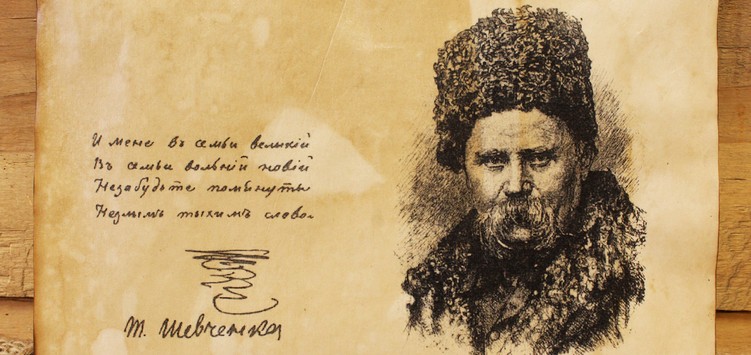 И мене въ семьи великій
Въ семьи вольній новій
Незабудьте помянуты
Незлымъ тыхимъ слово
Т. Шевченка